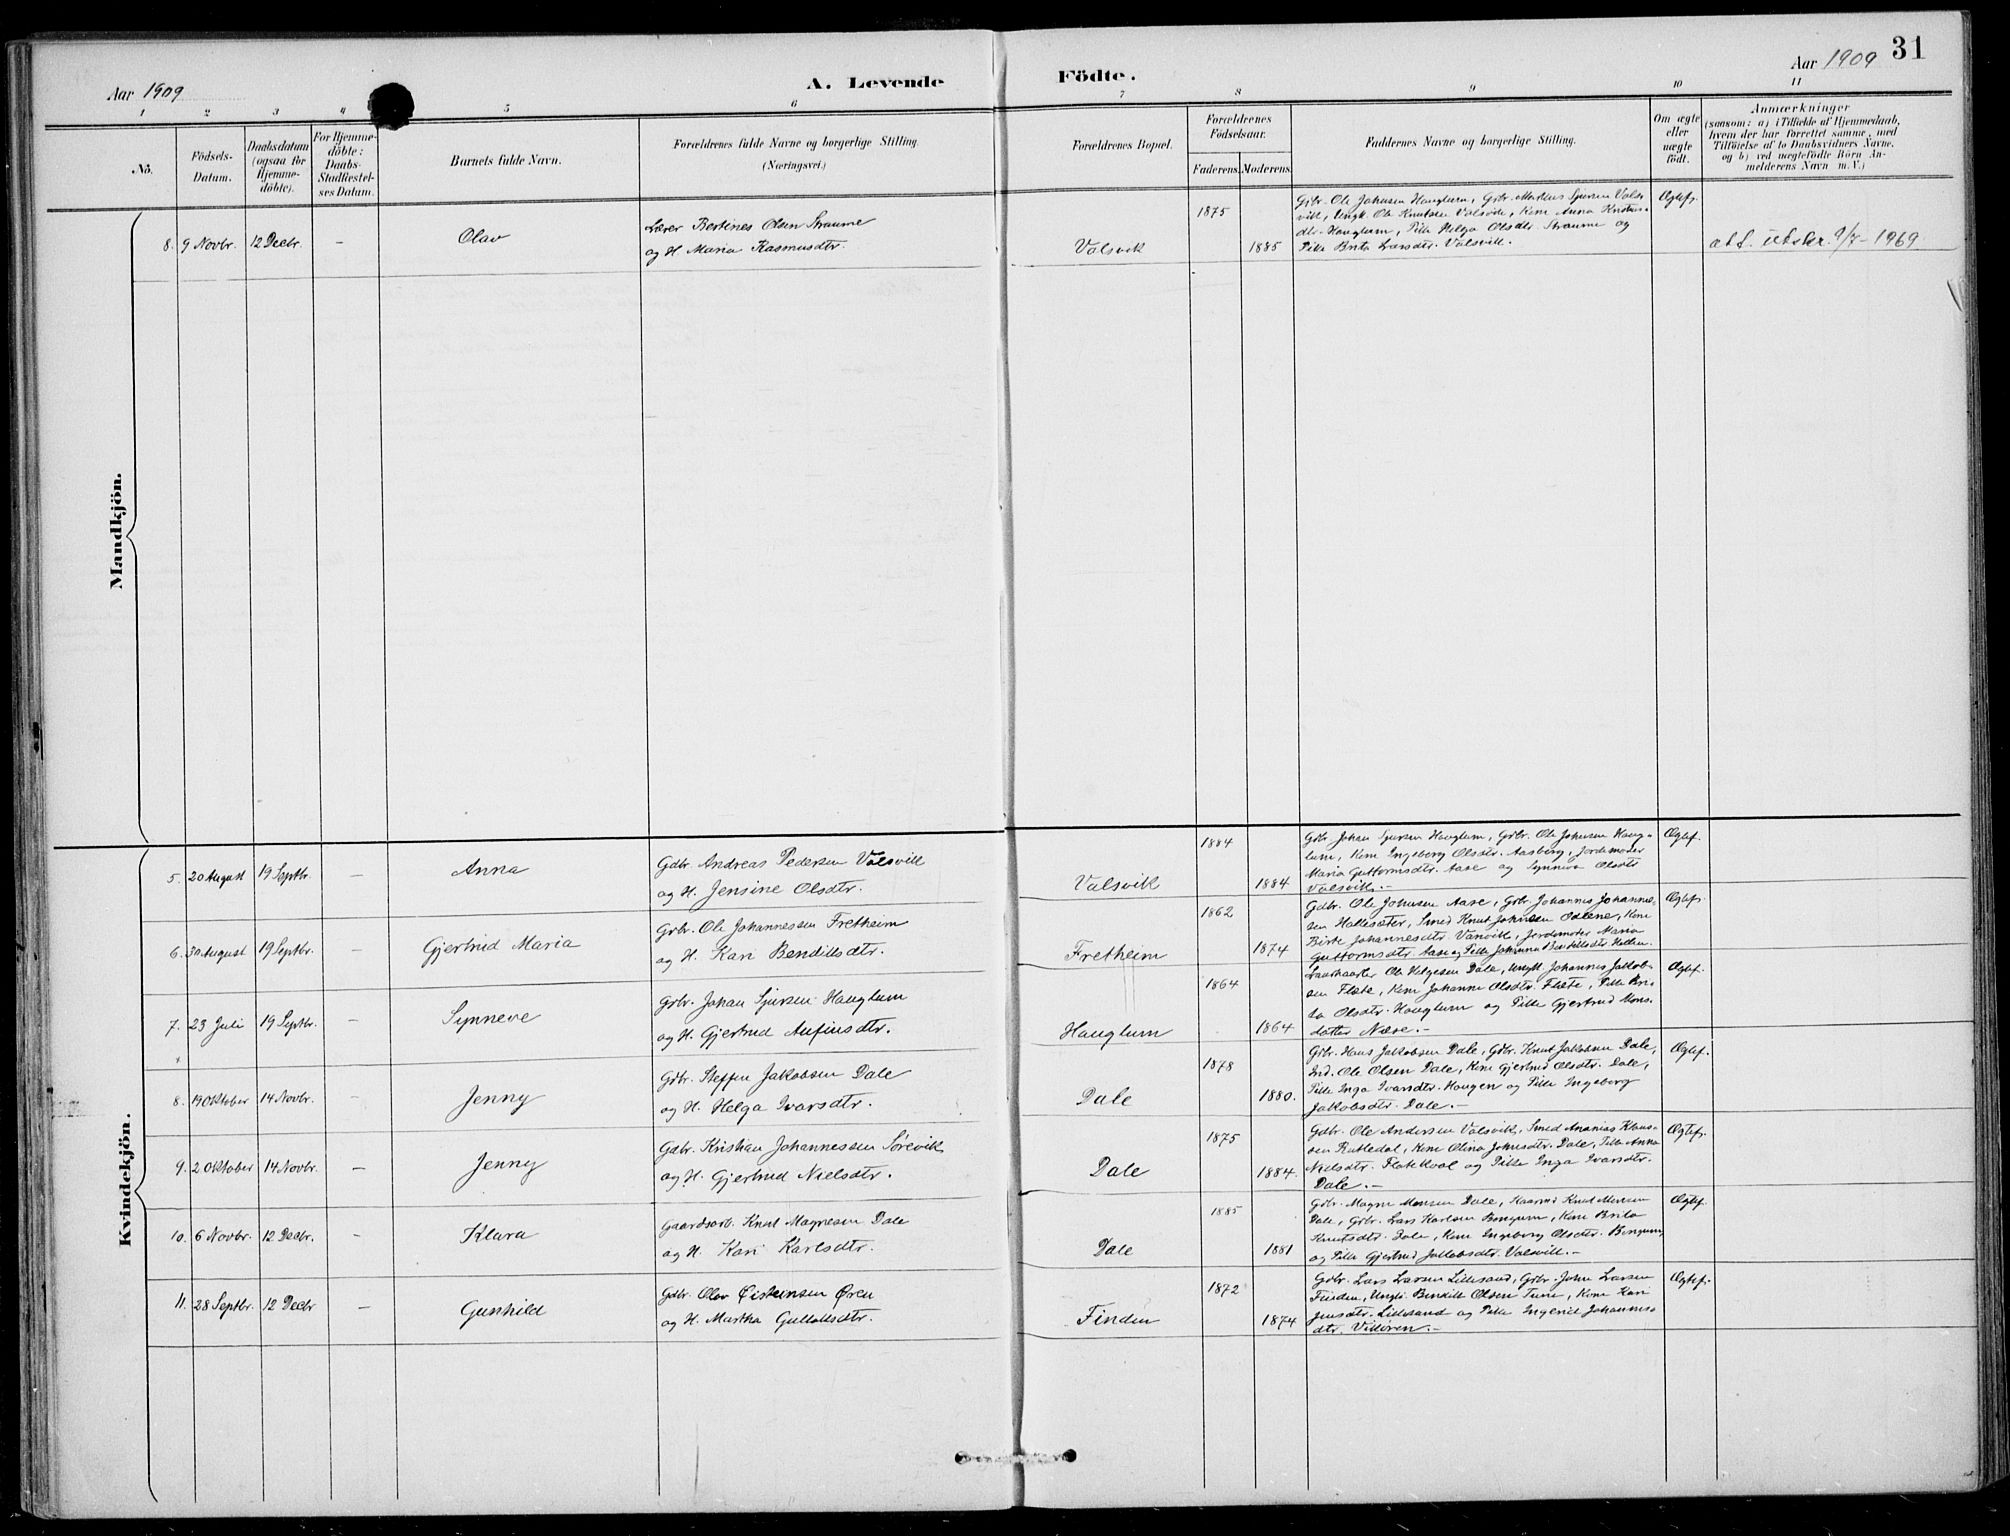 Aar 1909
A. Levende
Födte.
Aar 1909
31
1 2 3 4 5 6 7 8 9 10 11
No.
Födsels-
Datum.
Daabsdatum
(ogsaa for
Hjemme-
döbte).
For Hjemme-
döbte:
Daabs-
Stadfæstel-
ses Datum.
Barnets fulde Navn.
Forældrenes fulde Navne og borgerlige Stilling
(Næringsvei.)
Forældrenes Bopæl.
Forældrenes
Födselsaar.
Faderens.
Moderens.
Faddernes Navne og borgerlige Stilling.
Om ægte
eller
uægte
födt.
Anmærkninger
(saasom: a) i Tilfælde af Hjemmedaab,
hvem der har forrettet samme, med
Tilföielse af to Daabsvidners Navne,
og b) ved uægtefödte Börn An-
melderens Navn m. V.)
Mandkjön.
8. 9 Novbr. 12 Decbr. -
Olav
Lærer Bertines Olsen Straume
og H. Maria Rasmusdtr.
Valsvik
1875
1885
Gbr. Ole Johnsen Hauglum, Gbr. Markus Sjursen Vals-
vik, Ungk. Ole Knutsen Valsvik, Kone Anna
dtr. Hauglum, Pike Helga Olsdtr. Straume og
Pike Brita Larsdtr. Valsvik.
Ægtef.
att. utskr. 9/7-1969
Kvindekjön.
5. 20 August 19 Septbr. -
Anna
Gdbr. Andreas Pedersen Valsvik
og H. Jensine Olsdtr.
Valsvik
1884
1884
Gbr. Johan Sjursen Hauglum, Gdbr. Ole Johnsen Haug-
lum, Kone Ingeborg Olsdtr. Aasberg, Jordemoder
Maria Guttormsdtr. Aase og Synneva Olsdtr
Valsvik.-
Ægtef.
6. 30 August 19 Septbr. -
Gjertrud Maria
Gdbr. Ole Johannessen Fretheim
og H. Kari Bendiksdtr.
Fretheim
1862
1874
Gdbr. Ole Johnsen Aase, Gdbr. Johannes Johannes-
sen Hallesæter, Smed Knut Johnsen Odlene, Kone
Birte Johannesdtr. Vanvik, Jordemoder Maria
Guttormsdtr. Aase og Pike Johanna Bendiksdtr.
Ægtef.
7. 23 Juli 19 Septbr. -
Synneve
Gdbr. Johan Sjursen Hauglum
og H. Gjertrud Anfinsdtr.
Hauglum
1864
1864
Ole Helgesen Dale, Ungk. Johannes Jakob-
sen Flæte, Kone Johanne Olsdtr. Flæte, Pike Bri-
ta Olsdtr. Hauglum og Pike Gjertrud Mons-
datter Næse.-
Ægtef.
8. 19 Oktober 14 Novbr. -
Jenny
Gdbr. Steffen Jakobsen Dale
og H. Helga Ivarsdtr.
Dale
1878
1880.
Gdbr. Hans Jakobsen Dale, Gdbr. Knut Jakobsen Dale,
Ind. Ole Olsen Dale, Kone Gjertrud Olsdtr. Dale,
Pike Inga Ivarsdtr. Haugen og Pike Ingeborg
Jakobsdtr. Dale.-
Ægtef.
9. 2 Oktober 14 Novbr. -
Jenny
Gdbr. Kristian Johannessen Sørevik
og H. Gjertrud Nielsdtr.
Dale
1875
1884.
Gdbr. Ole Andersen Valsvik, Smed Ananias Klaus-
sen Rutledal, Kone Olina Johnsdtr. Dale, Pike Anna
Nielsdtr. Flatekval og Pike Inga Ivarsdtr.
Dale.-
Ægtef.
10. 6 Novbr. 12 Decbr. -
Klara
Gaardsarb. Knut Magnesen Dale
og H. Kari Karlsdtr.
Dale
1885
1881
Gdbr. Magne Monsen Dale, Kaarmd. Knut Monsen
Dale, Gdbr. Lars Karlsen Bongum, Kone Brita
Knutsdtr. Dale, Kone Ingeborg Olsdtr. Bongum
og Pike Gjertrud Jakobsdtr. Valsvik.-
Ægtef.
11. 28 Septbr. 12 Decbr -
Gunhild
Gdbr. Olav Eisteinsen Øren
og H. Martha Gullaksdtr.
Finden
1872
1874
Gdbr. Lars Larsen Lillesand, Gdbr. John Larsen
Finden, Ungk. Bendik Olsen Tune, Kone Kari
Jensdtr. Lillesand og Pike Ingerid Johannes-
dtr. Vikøren.-
Ægtef.